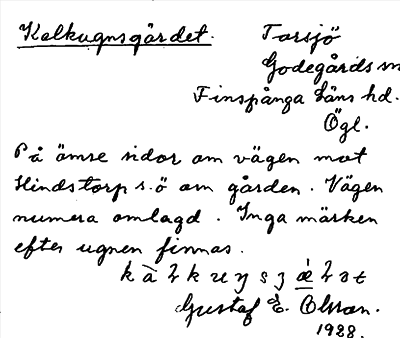 Kalkugnsgärdet. Torsjö
Godegårds sn
Finspånga läns hd.
Ögl.
På ömse sidor om vägen mot
Hindstorp s.ö om gården. Vägen
numera omlagd. Inga märken
efter ugnen finnas.
Gustaf E. Olsson.
1928.